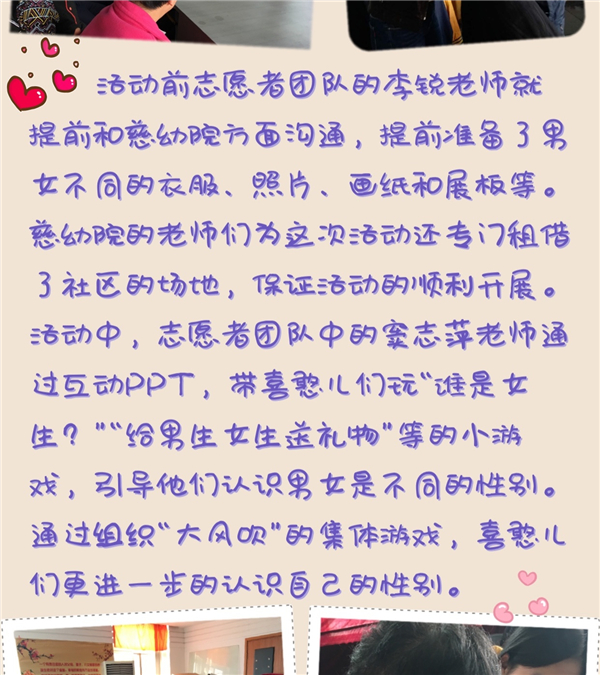 活动前志愿者团队的李锐老师就
提前和慈幼院方面沟通，提前准备了男
女不同的衣服、照片、画纸和展板等。
慈幼院的老师们为这次活动还专门租借
了社区的场地，保证活动的顺利开展。
活动中，志愿者团队中的窦志萍老师通
过互动PPT，带喜憨儿们玩“谁是女
生？”“给男生女生送礼物”等的小游
戏，引导他们认识男女是不同的性别。
通过组织“大风吹”的集体游戏，喜憨儿
们更进一步的认识自己的性别。